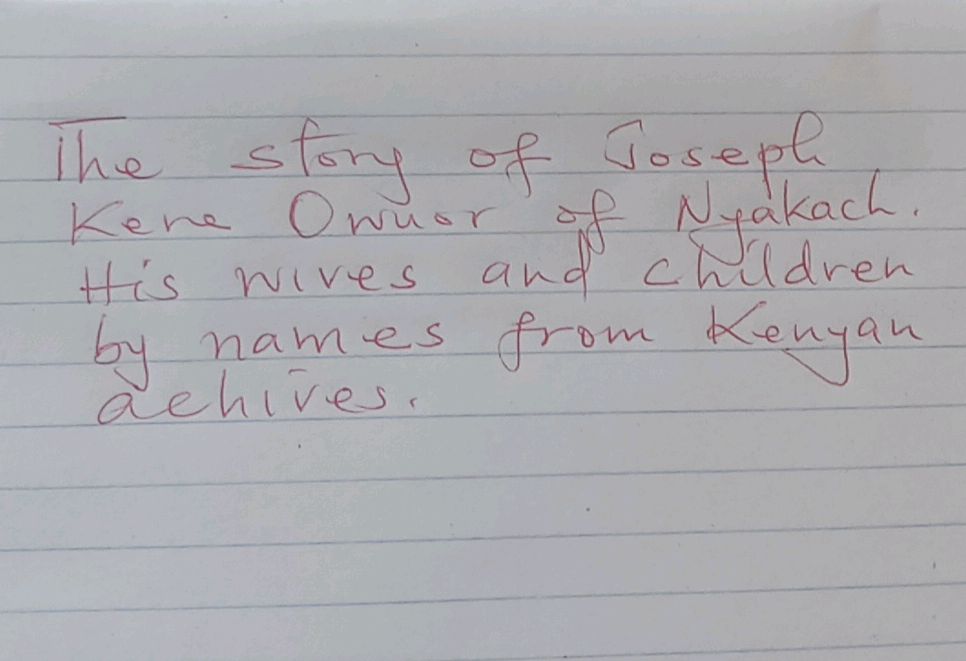 The story of Joseph
Kene Owuor of Nyakach.
His wives and children
by names from Kenyan
achives.